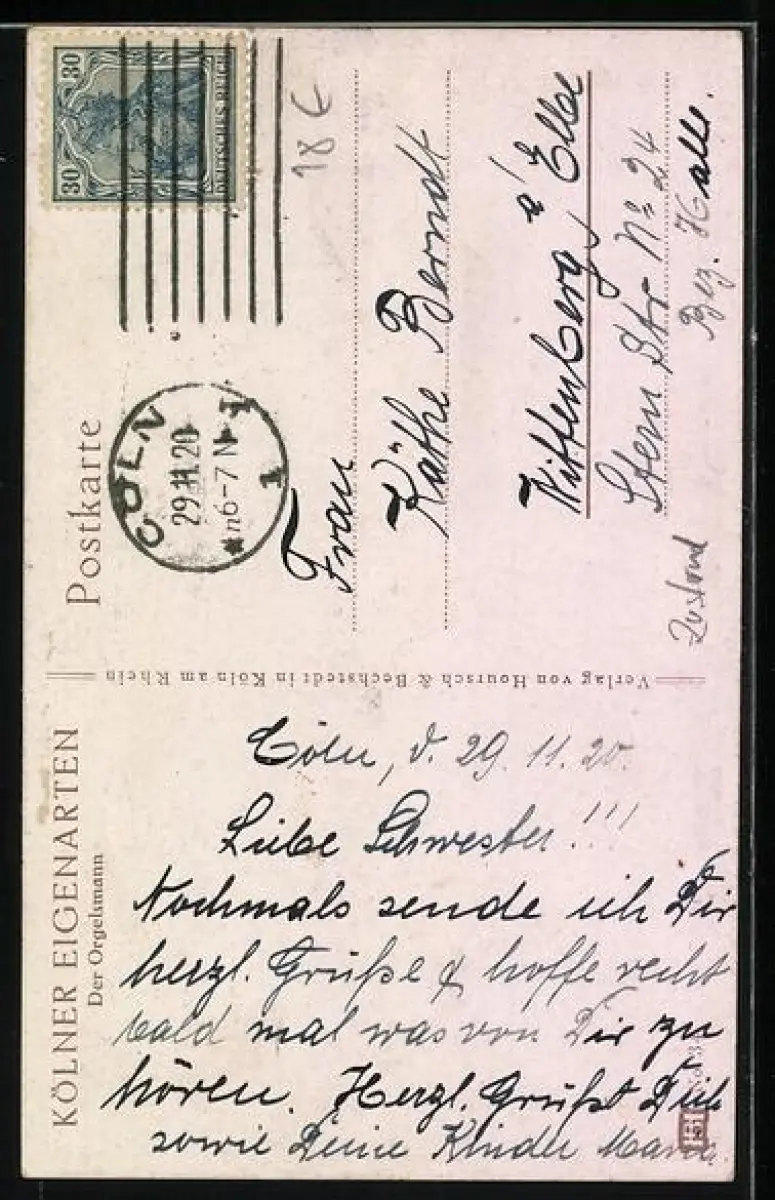 KÖLNER EIGENARTEN
Der Orgelsmann
Cöln, d. 29.11.20.
Liebe Schwester!!!
Nochmals sende ich Dir
herzl. Grüße & hoffe recht
bald mal was von Dir zu
hören. Herzl. Grüßt Dich
sowie Deine Kinder Maria
Verlag von Hoursch & Bechstedt in Köln am Rhein
Postkarte
30 30
30
DEUTSCHES REICH
CÖLN
29.11.20
*n6-7N
1
1
18 €
Frau
Käthe Berndt
Wittenberg a/ Elbe
Stern Str Nº 24
Bez. Halle.
Zustand